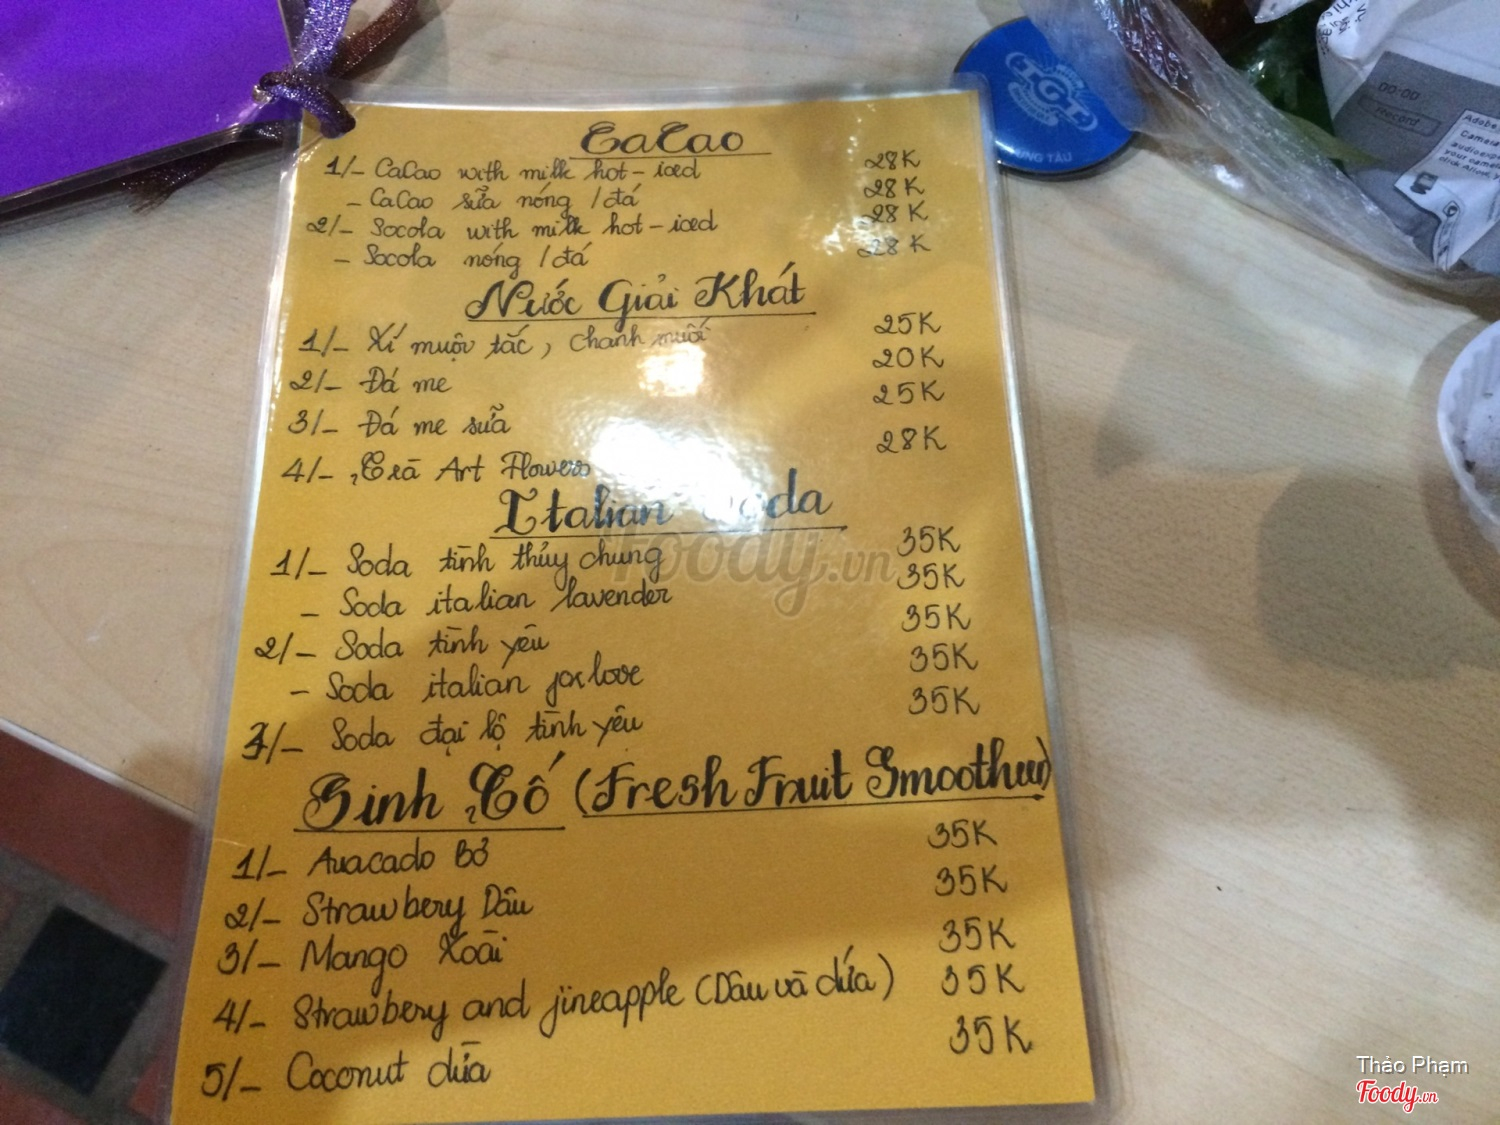 CaCao
1/- CaCao with milk hot - iced 28K
- CaCao sữa nóng / đá 28K
2/- Socola with milk hot - iced 28K
- Socola nóng / đá 28K
Nước Giải Khát
1/- Xí muội tắc, chanh muối 25K
2/- Đá me 20K
3/- Đá me sữa 25K
4/- Trà Art Flowers 28K
Italian Soda
1/- Soda tình thủy chung 35K
- Soda italian lavender 35K
2/- Soda tình yêu 35K
- Soda italian for love 35K
3/- Soda đại lộ tình yêu 35K
Sinh Tố (Fresh Fruit Smoothee)
1/- Avacado Bơ 35K
2/- Strawbery Dâu 35K
3/- Mango Xoài 35K
4/- Strawbery and jineapple (Dâu và dứa) 35K
5/- Coconut dừa 35K
TGT
VŨNG TÀU
00:00
record
Foody.vn
Thảo Phạm
Foody.vn